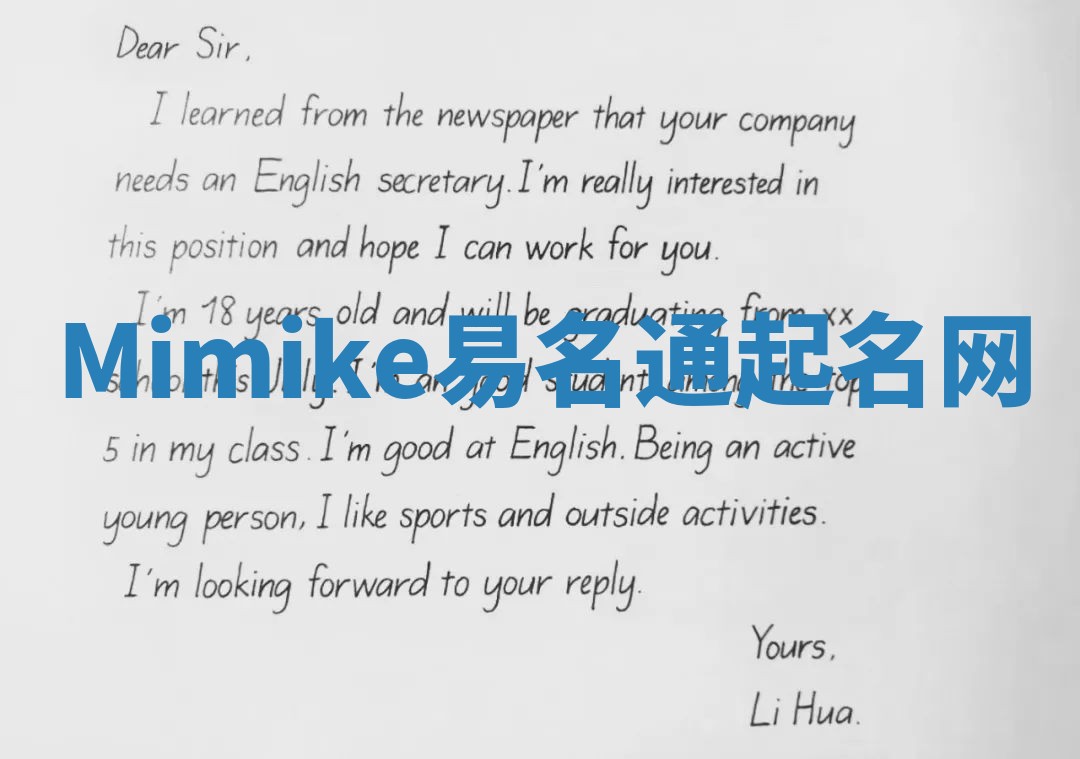 Dear Sir,
I learned from the newspaper that your company
needs an English secretary. I'm really interested in
this position and hope I can work for you.
I'm 18 years old and will be graduating from xx
Mimike易名通起名网
school this July. I'm a good student among the top
5 in my class. I'm good at English. Being an active
young person, I like sports and outside activities.
I'm looking forward to your reply.
Yours,
Li Hua.